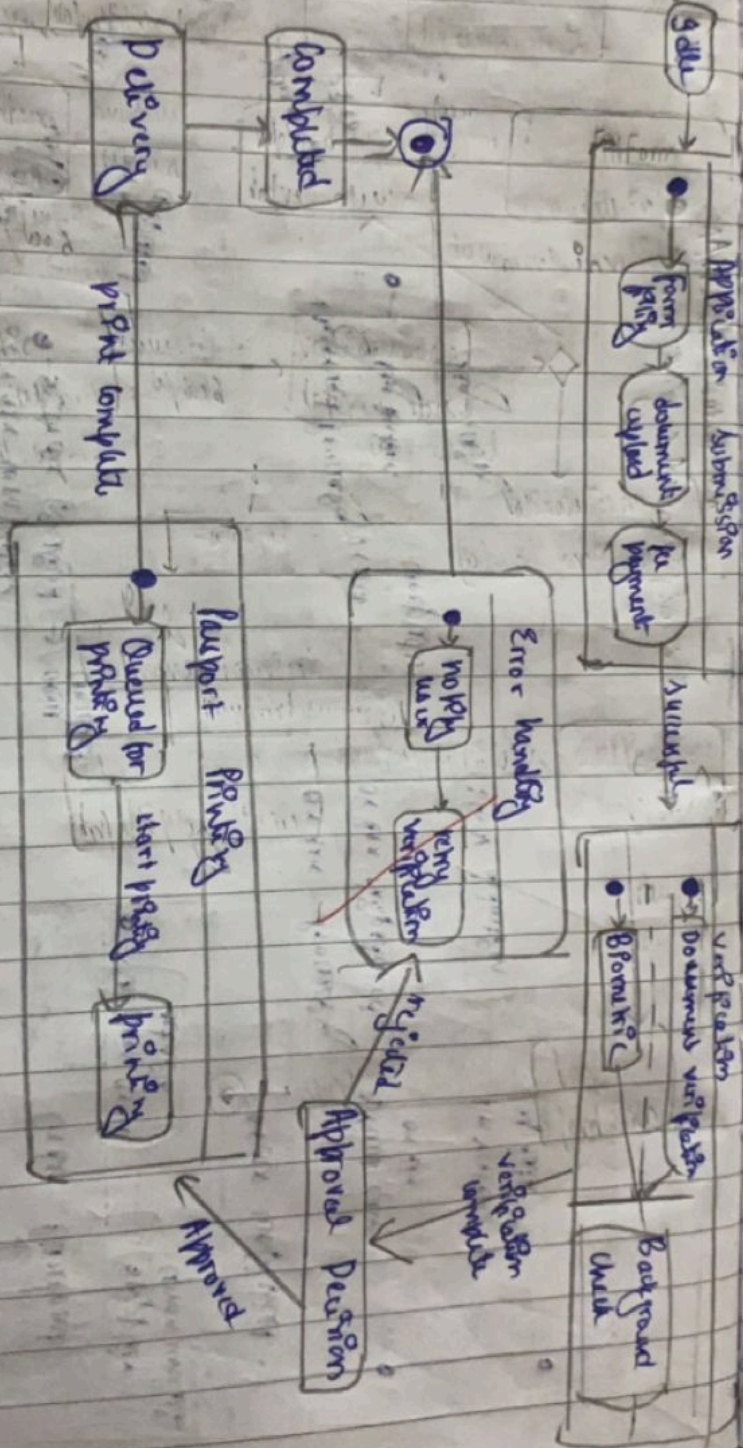 Idle
Application Submission
Form
filling
document
upload
fee
payment
successful
verification
Document verification
Biometric
Background
check
verification
complete
Approval Decision
rejected
Approved
Error handling
notify
user
retry
verification
Passport Printing
Queued for
printing
start printing
printing
print complete
Delivery
Completed